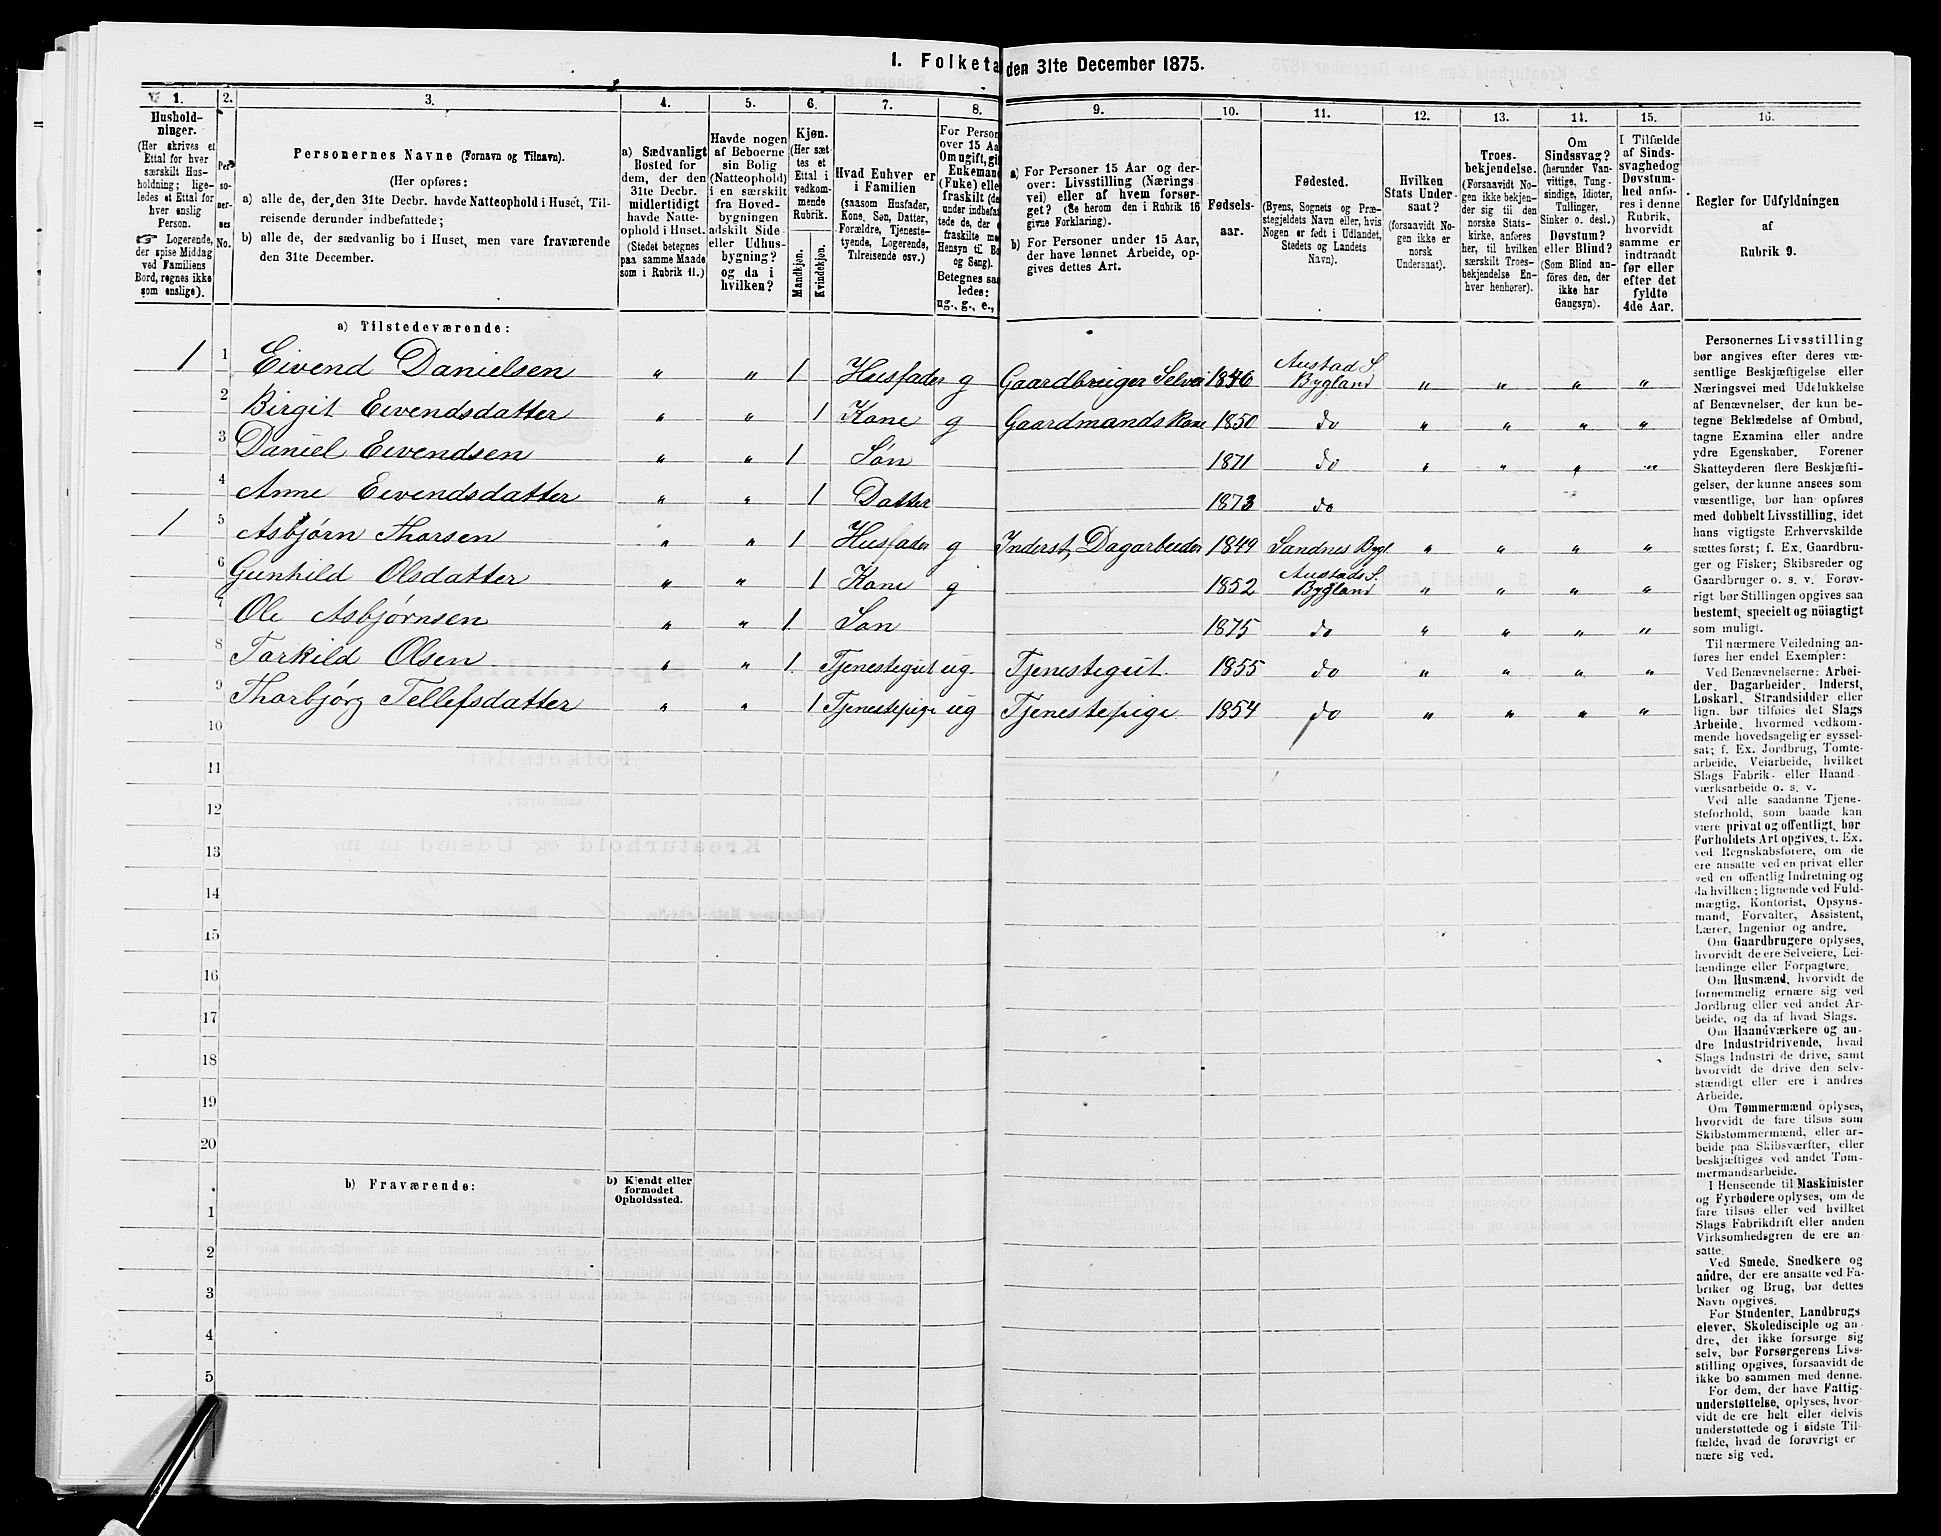 1. Folketa den 31te December 1875.
1. 2. 3. 4. 5. 6. 7. 8. 9. 10. 11. 12. 13. 14. 15. 16.
Hushold-
ninger.
(Her skrives et
Ettal for hver
særskilt Hus-
holdning; lige-
ledes et Ettal for
hver enslig
Person.
☞ Logerende,
der spise Middag
ved Familiens
Bord, regnes ikke
som enslige).
Per-
so-
ner-
nes
No.
Personernes Navne (Fornavn og Tilnavn).
(Her opføres:
a) alle de, der den 31te Decbr. havde Natteophold i Huset, Til-
reisende derunder indbefattede;
b) alle de, der sædvanlig bo i Huset, men vare fraværende
den 31te December.
a) Sædvanligt
Bosted for
dem, der den
31te Decbr.
midlertidigt
havde Natte-
ophold i Huset.
(Stedet betegnes
paa samme Maade
som i Rubrik 11.)
Havde nogen
af Beboerne
sin Bolig
(Natteophold)
i en særskilt
fra Hoved-
bygningen
adskilt Side-
eller Udhus-
bygning?
og da i
hvilken?
Kjøn.
(Her sæt-
tes et
Ettal i
vedkom-
mende
Rubrik.
Mandkjøn.
Kvindekjøn.
Hvad Enhver er
i Familien
(saasom Husfader,
Kone, Søn, Datter,
Forældre, Tjeneste-
tyende, Logerende,
Tilreisende osv.
For Person
over 15 Aa
Om ugift, gif
Enkemand
(Fuke) elle
fraskilt (de
under indbefat
tede de, der e
fraskilte me
Hensyn til Bo
og Seng).
Betegnes saa
ledes:
ug., g., e.,
a) For Personer 15 Aar og der-
over: Livsstilling (Nærings
vei) eller af hvem forsør-
get? (Se herom den i Rubrik 16
givne Forklaring).
b) For Personer under 15 Aar,
der have lønnet Arbeide, op-
gives dettes Art.
Fødsels-
aar.
Fødested.
(Byens, Sognets og Præ-
stegjeldets Navn eller, hvis
Nogen er født i Udlandet,
Stedets og Landets
Navn).
Hvilken
Stats Under-
saat?
(forsaavidt No-
gen ikke er
norsk
Undersaat).
Troes-
bekjendelse.
(Forsaavidt No-
gen ikke bekjen-
der sig til den
norske Stats-
kirke, anføres
her, til hvilken
særskilt Troes-
bekjendelse En-
hver henhører).
Om
Sindssvag?
(herunder Van-
vittige, Tung-
sindige, Idioter,
Tullinger,
Sinker o. desl.)
Døvstum?
eller Blind?
(Som Blind an-
føres den, der
ikke har
Gangsyn).
I Tilfælde
af Sinds-
svaghed og
Døvstum-
hed anfø-
res i denne
Rubrik,
hvorvidt
samme er
indtraadt
før eller
efter det
fyldte
4de Aar.
Regler for Udfyldningen
af
Rubrik 9.
a) Tilstedeværende:
1 1 Eivend Danielsen " " 1 Husfader g Gaardbruger Selvei 1846 Austad S. Bygland " " " "
2 Birgit Eivendsdatter " " 1 Kone g Gaardmandskone 1850 do " " " "
3 Daniel Eivendsen " " 1 Søn 1871 do " " " "
4 Anne Eivendsdatter " " 1 Datter 1873 do
1 5 Asbjørn Thorsen " " 1 Husfader g Inderst, Dagarbeider 1849 Sandnes Bygl " " " "
6 Gunhild Olsdatter " " 1 Kone g 1852 Austads S. Bygland " " " "
7 Ole Asbjørnsen " " 1 Søn 1875 do " " " "
8 Torkild Olsen " " 1 Tjenestegut ug. Tjenestegut. 1855 do " " " "
9 Thorbjørg Tellefsdatter " " 1 Tjenestepige ug Tjenestepige 1854 do " " " "
10
11
12
13
14
15
16
17
18
19
20
b) Fraværende:
b) Kjendt eller
formodet
Opholdssted.
1
2
3
4
5
Personernes Livsstilling
bør angives efter deres væ-
sentlige Beskjæftigelse eller
Næringsvei med Udelukkelse
af Benævnelser, der kun be-
tegne Beklædelse af Ombud,
tagne Examina eller andre
ydre Egenskaber. Forener
Skatteyderen flere Beskjæfti-
gelser, der kunne ansees som
væsentlige, bør han opføres
med dobbelt Livsstilling, idet
hans vigtigste Erhvervskilde
sættes først; f. Ex. Gaardbru-
ger og Fisker; Skibsreder og
Gaardbruger o. s. v. Forøv-
rigt bør Stillingen opgives saa
bestemt, specielt og nöiagtigt
som muligt.
Til nærmere Veiledning an-
føres her endel Exempler:
Ved Benævnelserne: Arbei-
der, Dagarbeider, Inderst,
Løskarl, Strandsidder eller
lign. bør tilføies det Slags
Arbeide, hvormed vedkom-
mende hovedsagelig er syssel-
sat; f. Ex. Jordbrug, Tomte-
arbeide, Veiarbeide, hvilket
Slags Fabrik- eller Haand-
værksarbeide o. s. v.
Ved alle saadanne Tjene-
steforhold, som baade kan
være privat og offentligt, bør
Forholdets Art opgives, t. Ex.
ved Regnskabsførere, om de
ere ansatte ved en privat eller
ved en offentlig Indretning og
da hvilken; lignende ved Fuld-
mægtig, Kontorist, Opsyns-
mand, Forvalter, Assistent,
Lærer, Ingeniør og andre.
Om Gaardbrugere oplyses,
hvorvidt de ere Selveiere, Lei-
lændinge eller Forpagtere.
Om Husmænd, hvorvidt de
fornemmelig ernære sig ved
Jordbrug eller ved andet Ar-
beide, og da af hvad Slags.
Om Haandværkere og an-
dre Industridrivende, hvad
Slags Industri de drive, samt
hvorvidt de drive den selv-
stændigt eller ere i andres
Arbeide.
Om Tømmermænd oplyses,
hvorvidt de fare tilsøs som
Skibstømmermænd, eller ar-
beide paa Skibsværfter, eller
beskjæftiges ved andet Tøm-
mermandsarbeide.
I Henseende til Maskinister
og Fyrbødere oplyses, om de
fare tilsøs eller ved hvilket
Slags Fabrikdrift eller anden
Virksomhedsgren de ere an-
satte.
Ved Smede, Snedkere og
andre, der ere ansatte ved Fa-
briker og Brug, bør dettes
Navn opgives.
For Studenter, Landbrugs
elever, Skoledisciple og an-
dre, der ikke forsørge sig
selv, bør Forsørgerens Livs-
stilling opgives, forsaavidt de
ikke bo sammen med denne.
For dem, der have Fattig-
understøttelse, oplyses, hvor-
vidt de ere helt eller delvis
understøttede og i sidste Til-
fælde, hvad de forøvrigt er
nære sig ved.